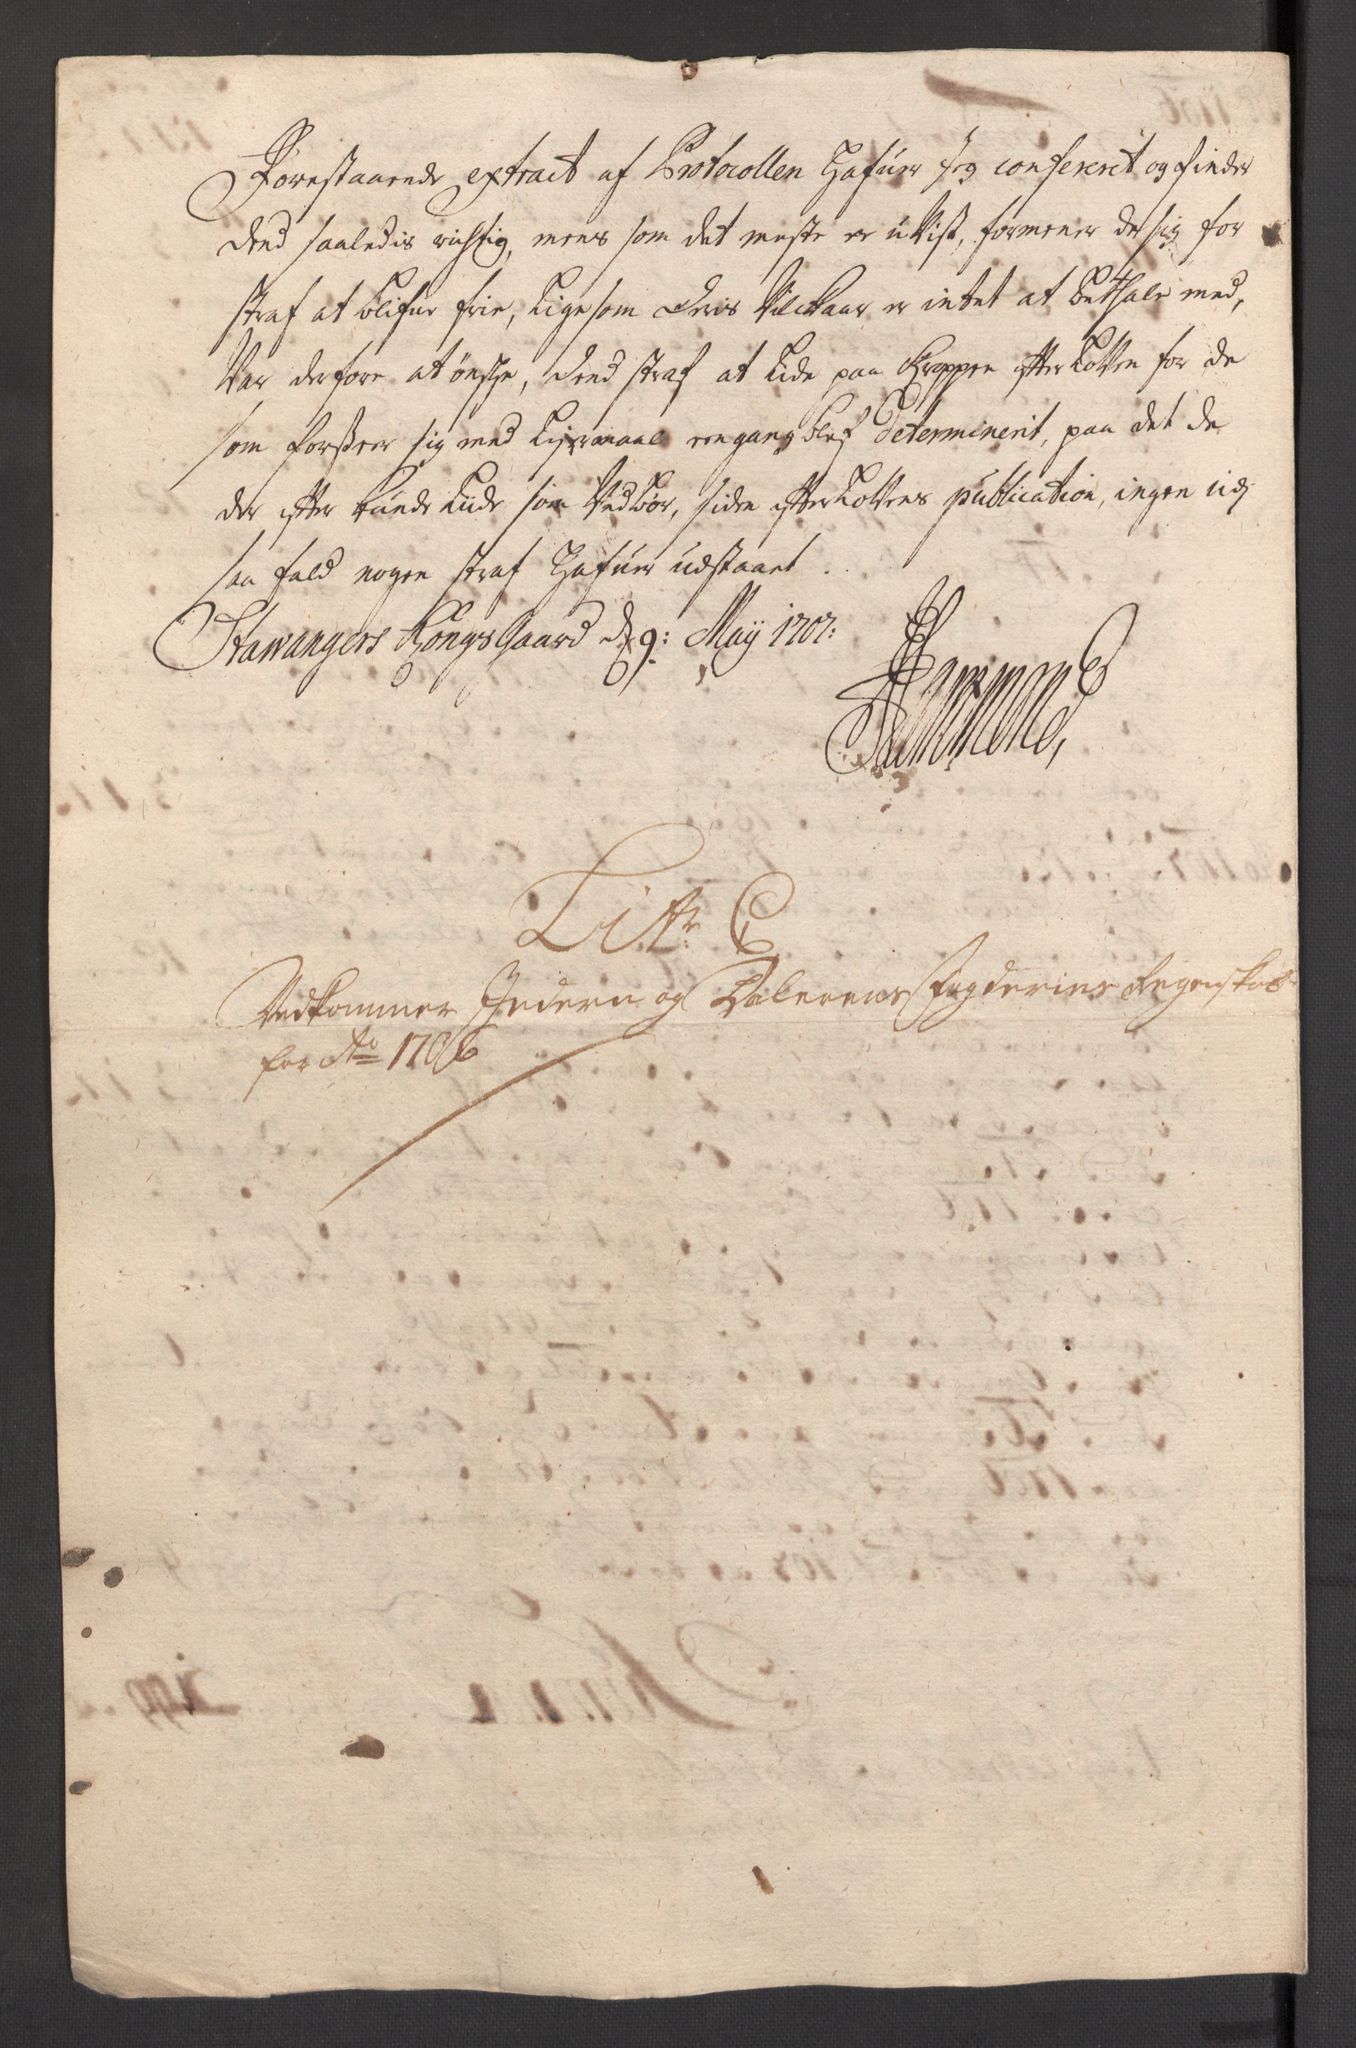 Forestaaende extract af Protocollen hafuer jeg confererit og finder
dend saaledis richtig, mens som det meste er uvist, formener de sig for
straf at blifue frie, ligesom deris Vilckaar er intet at bethale med,
Var derfore at ønske, dend straf at lide paa Kroppen efter Loven for de
som forseer sig med Lejermaal eengang blef determinerit, paa det de
der efter kunde liide som Vedbør, siden efter Lovens publication, ingen udj
saa fald nogen straf hafuer udstaaet.
Stawangers Kongsgaard d. 9: Maij 1707:
Hammond,
Litr C
Vedkommer Jedern og Dalernes Fogderies Regenskab
for Ao 1706